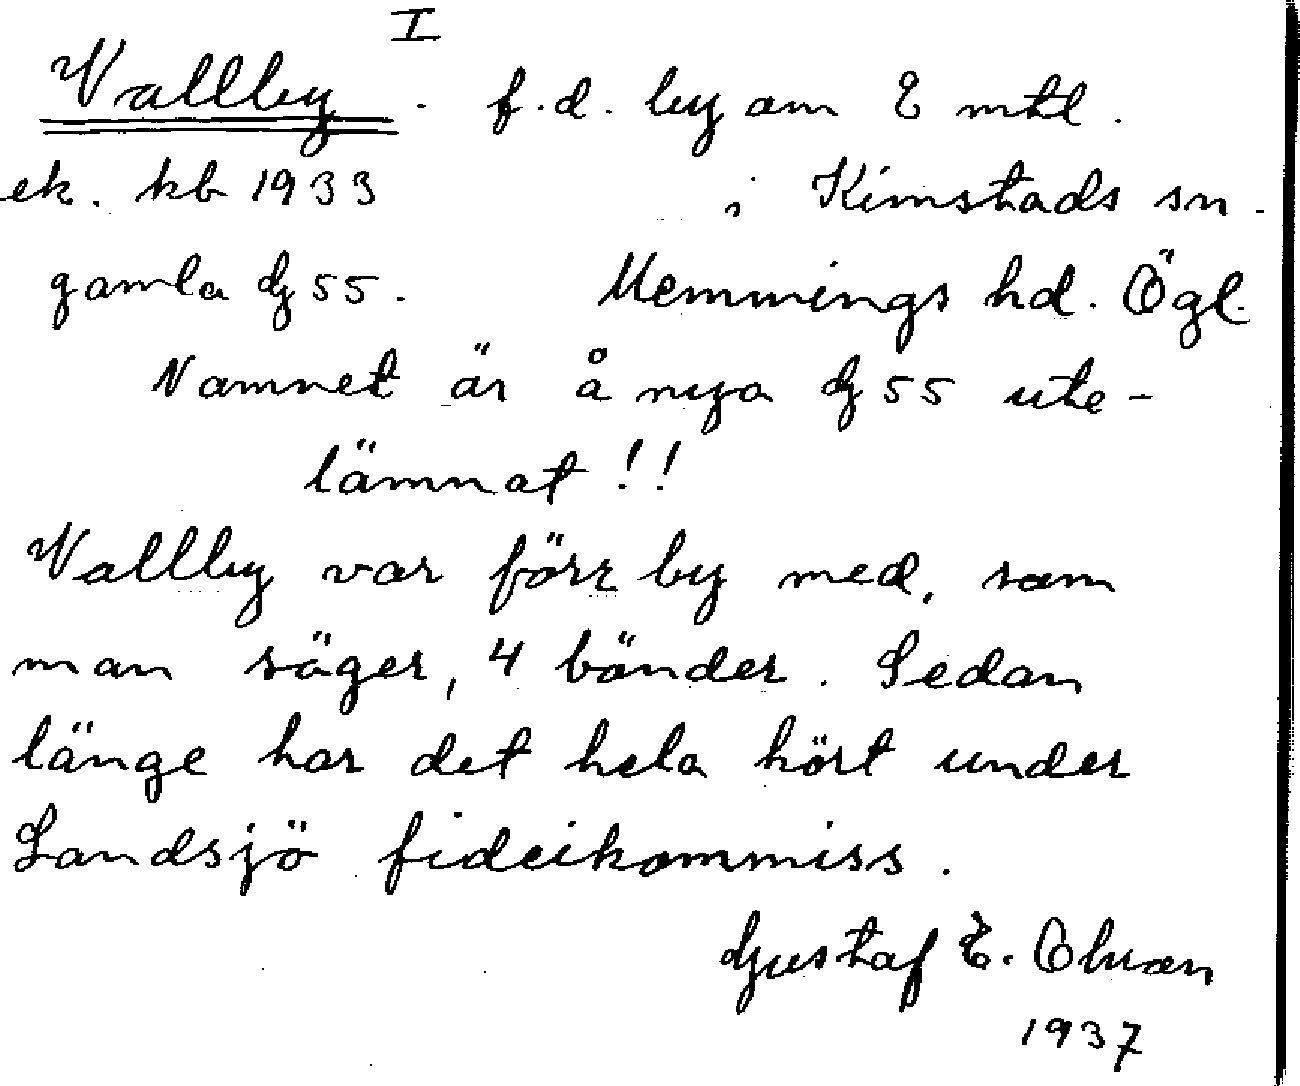 I
Vallby. f.d. by om 8 mtl.
ek. kb 1933 i Kimstads sn.
gamla G 55. Memmings hd. Ögl.
Namnet är å nya G 55 ute-
lämnat!!
Vallby var förr by med, som
man säger, 4 bönder. Sedan
länge har det hela hört under
Landsjö fideikommiss.
Gustaf E.
1937